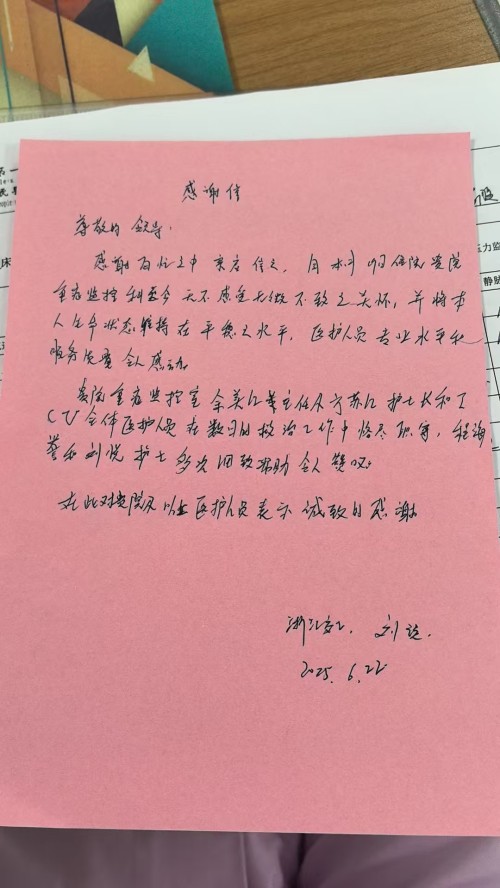 感谢信
尊敬的领导：
感谢百忙之中 亲启信文，自本月19日住院贵院
重症监护科至今 无不感受无微不致之关怀，并将本
人生命状态维持在平稳之水平，医护人员专业水平和
服务质量令人感动。
贵院重症监护室 主任及 护士长和I
CU全体医护人员在数日的救治工作中恪尽职守，程海
和刘悦护士多次 帮助令人赞叹。
在此对贵院及以上医护人员表示诚致的感谢
浙江 刘
2025.6.22
第一
床
力监
静脉